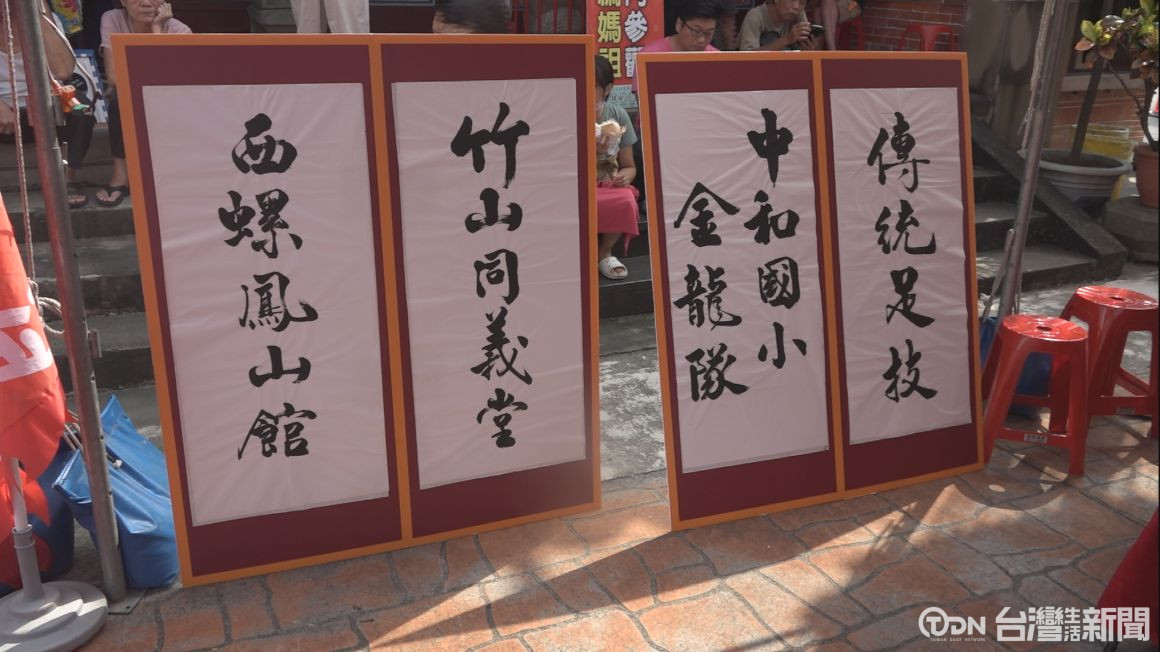 傳統足技
中和國小
金龍隊
竹山同義堂
西螺鳳山館
參觀
媽祖
TDN 台灣生活新聞
TAIWAN DAILY NETWORK